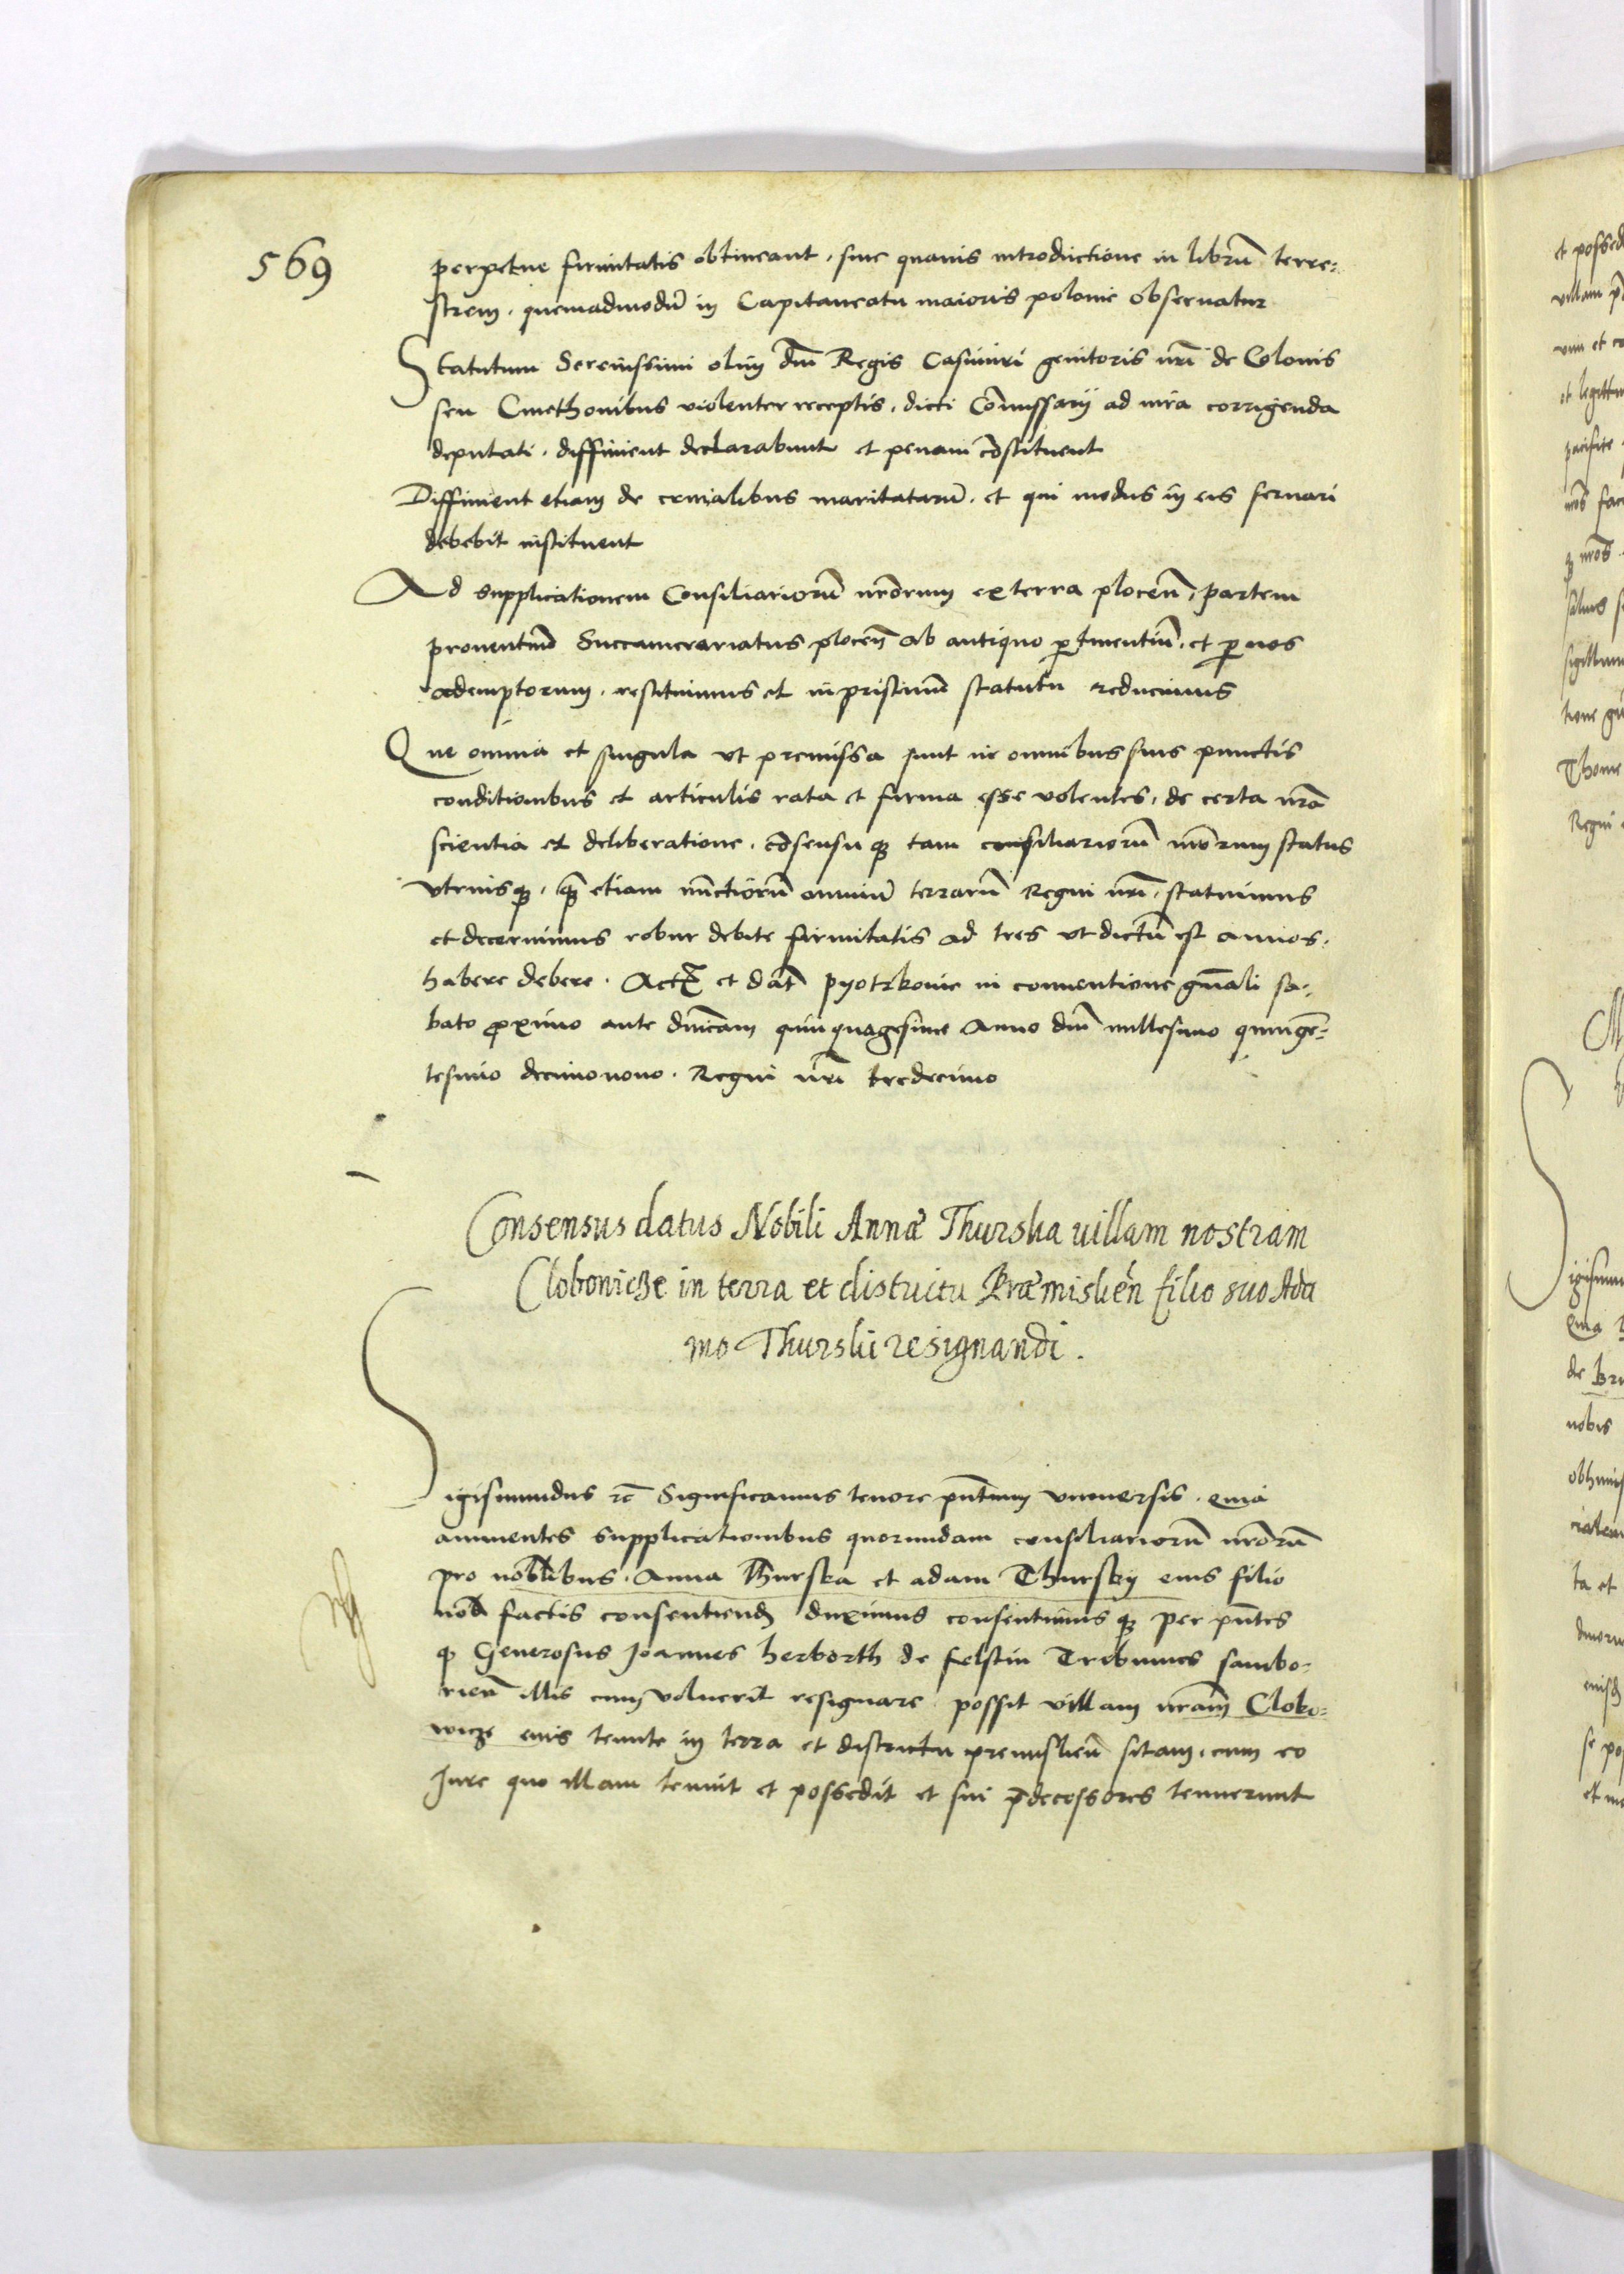 569
perpetue firmitatis obtineant, sine quavis introductione in librū terre-
strem, quemadmodū in Capitaneatu maioris polonie observatur
Statutum Serenissimi olim dni Regis Casimiri genitoris nri de Colonis
seu Cmethonibus violenter receptis, dicti Comissarij ad iura corrigenda
deputati, diffinient declarabunt et penam cōstituent
Diffinient etiam de crinalibus maritatarū, et qui modus in eis servari
debebit instituent
Ad supplicationem Consiliariorū nrorum ex terra plocen, partem
proventuū Succamerariatus plocen ab antiquo ptinentiū, et p nos
ademptorum, restituimus et in pristinum statutū reducimus
Que omnia et singula ut premissa sunt in omnibus suis punctis
conditionibus et articulis rata et firma esse volentes, de certa nra
scientia et deliberatione, cōsensu q tam consiliariorū nrorum status
utriusq, q etiam nuctiorū omniū terrarū Regni nri, statuimus
et decernimus robur debite firmitatis ad tres ut dictū est annos,
habere debere. Act et dat pyotrkovie in conventione gnali sa-
bato proximo ante dnicam quinquagesime Anno dni millesimo quinge-
tesimo decimonono. Regni nri tredecimo
Consensus datus Nobili Annæ Thurska villam nostram
Clobonicze in terra et districtu Præmislien filio suo Ada
mo Thurski resignandi.
Sigismundus rc Significamus tenore pntium universis. quia
annuentes supplicationibus quorundam consiliariorū nrorū
pro nobilibus. Anna Thurska et adam Thursky eius filio
nob factis consentiend duximus consentimus q per pntes
q Generosus Joannes herborth de felstin Tribunus sambo-
rien illis cum voluerit resignare possit villam nram Clobo-
wicze eius tenute in terra et districtu premislien sitam, cum eo
Jure quo illam tenuit et possedit et sui pdecessores tenuerunt